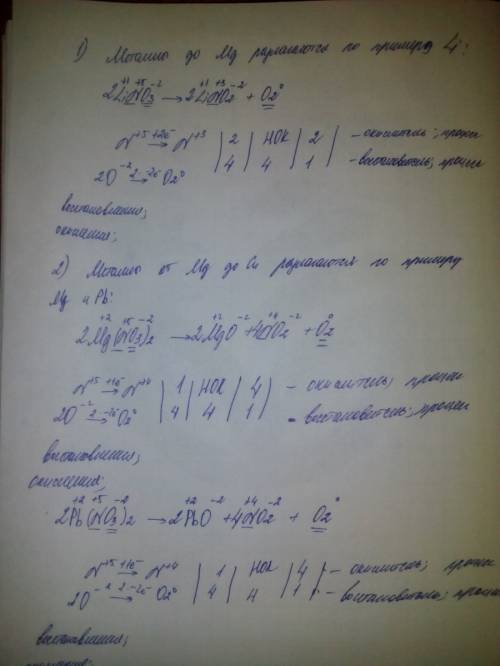 1) Металлы до Mg разлагаются по примеру Li:
+1 +5 -2 +1 +3 -2 0
2LiNO3 → 2LiNO2 + O2
N+5 +2e→ N+3 | 2 | НОК | 2 | – окислитель; процесс
2O-2 2·-2e→ O2 0 | 4 | 4 | 1 | – восстановитель; процесс
восстановления;
окисления;
2) Металлы от Mg до Cu разлагаются по примеру
Mg и Pb:
+2 +5 -2 +2 -2 +4 -2 0
2Mg(NO3)2 → 2MgO + 4NO2 + O2
N+5 +1e→ N+4 | 1 | НОК | 4 – окислитель; процесс
2O-2 2·-2e→ O2 0 | 4 | 4 | 1 – восстановитель; процесс
восстановления;
окисления;
+2 +5 -2 +2 -2 +4 -2 0
2Pb(NO3)2 → 2PbO + 4NO2 + O2
N+5 +1e→ N+4 | 1 | НОК | 4 | – окислитель; процесс
2O-2 2·-2e→ O2 0 | 4 | 4 | 1 | – восстановитель; процесс
восстановления;